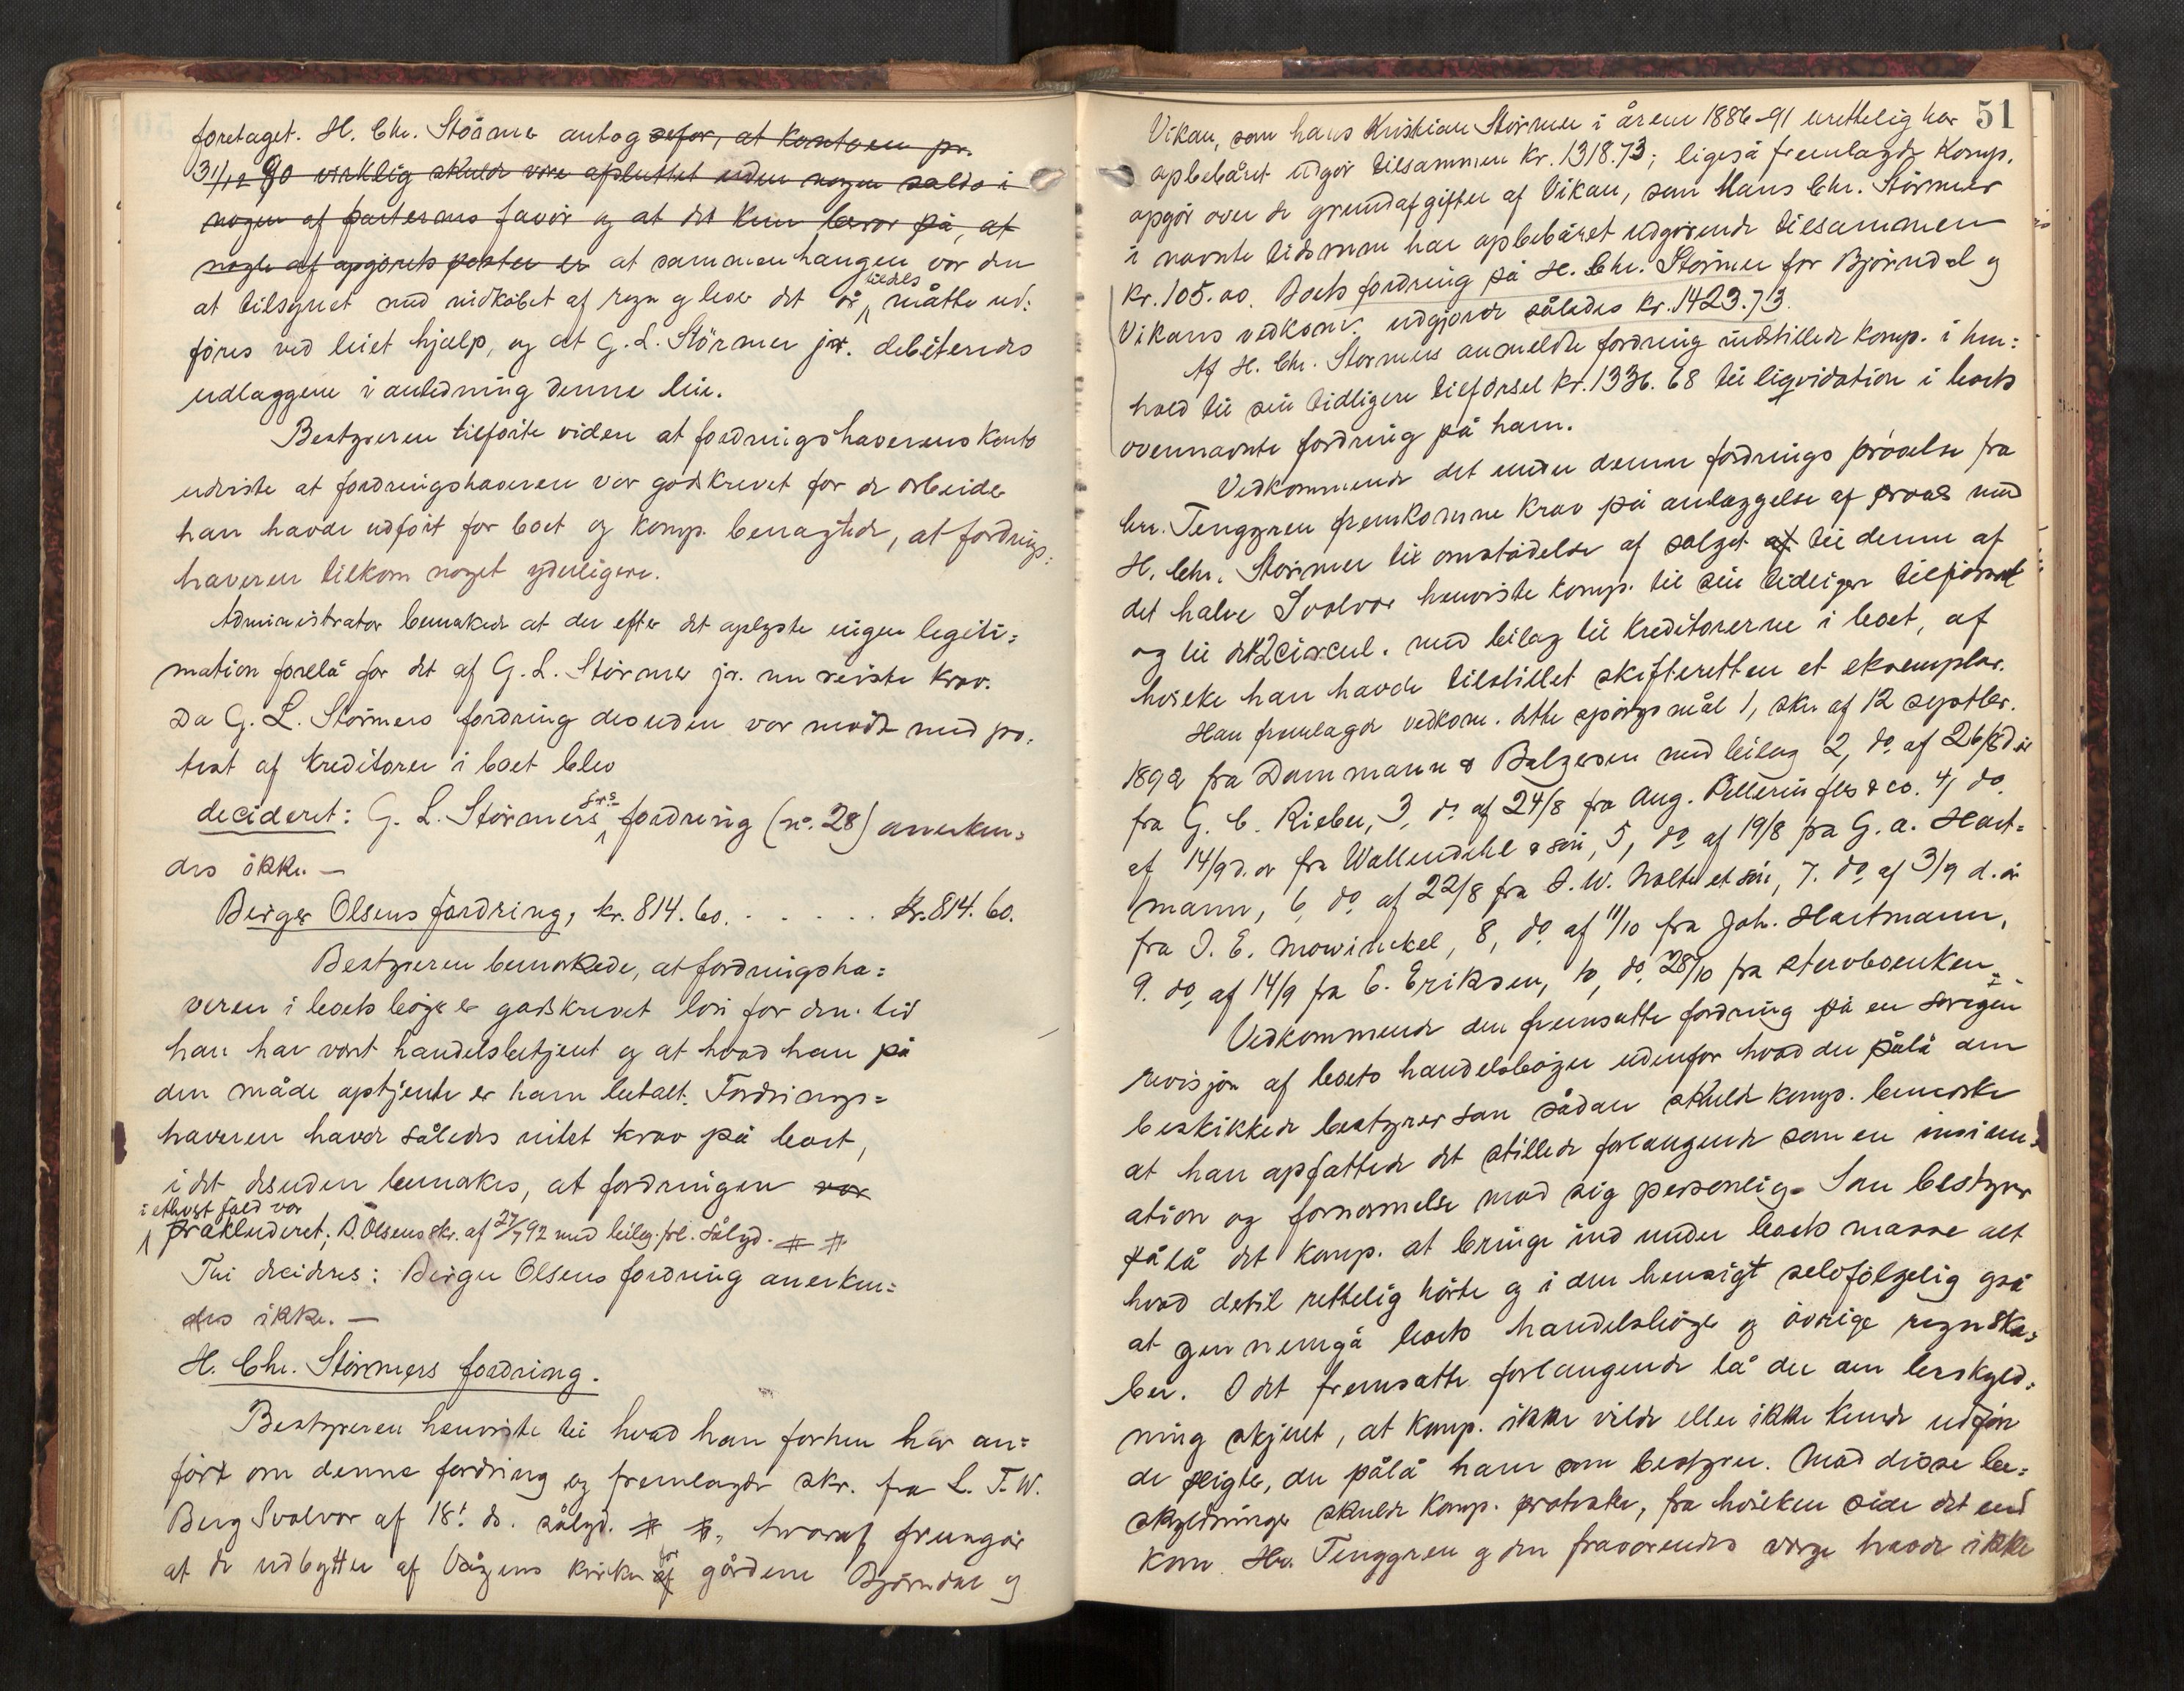 foretaget. H. Chr. Störmer antog derfor, at kontoen pr.
31/12 90 virklig skulde være afsluttet uden nogen saldo i
nogen af parternes favör og at det kun beror på, at
nogle af opgjörets poster er at sammenhængen var den
at tilsynet med nidkäbet af rogn og lever det år tildels måtte ud:
föres ved leiet hjælp, og at G. L. Störmer jr. debiteredes
udlæggene i anledning denne leie.
Bestyreren tilföite viden at fordringshaverens konto
udviste at fordringshaveren var godskrevet for de arbeider
han havde udfört for boet og komp. benægtede, at fordrings:
haveren tilkom noget yderligere.
Administrator bemærkede at der efter det oplyste ingen legiti:
mation forelå for det af G. L. Störmer jr. nu reiste krav.
Da G. L. Störmers fordring desuden var mödt med pro:
test af kreditorer i boet blev
decideret: G. L. Störmers srs fordring (no. 28) anerken:
des ikke. —
Birger Olsens fordring, kr. 814.60. . . . . . kr. 814.60.
Bestyreren bemærkede, at fordringsha:
veren i boets böger er godskrevet lön for den tid
han har vært handelsbetjent og at hvad han på
den måde optjente er ham betalt. Fordrings=
haveren havde således intet krav på boet,
idet desuden bemærkes, at fordringen var
i ethvert fald var
prækluderet; B. Olsens skr. af 27/7 92 med bilag frl. sålyd. # #
Thi decideres: Birger Olsens fordring anerken=
des ikke. —
H. Chr. Störmers fordring.
Bestyreren henviste til hvad han forhen har an=
fört om denne fordring og fremlagde skr. fra L. T. W.
Berg Svolvær af 18. ds. sålyd. # #, hvoraf fremgår
at de udbytter af Vågens kirke af for gårdene Björndal og
51
Vikan, som Hans Kristian Störmer i årene 1886-91 urettelig har
opbebåret udgör tilsammen kr. 1318.73; ligeså fremlagde Komp.
opgör over de grundafgifter af Vikan, som Hans Chr. Störmer
i nævnte tidsrum har opbebåret udgörende tilsammen
kr. 105.00. Boets fordring på H. Chr. Störmer for Björndal og
Vikans vedkom. udgjorde således kr. 1423.73.
Af H. Chr. Störmers anmeldte fordring indstillede Komp. i hen:
hold til sin tidligere tilförsel kr. 1336.68 til liqvidation i boets
ovennævnte fordring på ham.
Vedkommende det under denne fordrings prövelse fra
hr. Tenggren fremkomne krav på anlæggelse af proces mod
H. Chr. Störmer til omstödelse af salget af til denne af
det halve Svolvær henviste komp. til sin tidligere tilförsel
og til det 2 circul. med bilag til kreditorerne i boet, af
hvilke han havde tilstillet skifteretten et eksemplar.
Han fremlagde vedkom. dette spörgsmål 1, skr. af 12 septbr.
1892 fra Dammann & Balzersen med bilag 2, do. af 26/8 d. år
fra G. C. Rieber, 3, do. af 24/8 fra Aug. Pellerin fils & co. 4, do.
af 14/9 d. år fra Wallendahl & sön, 5, do. af 19/8 fra G. A. Hart=
mann, 6, do. af 22/8 fra D. W. Nolte et sön, 7. do. af 3/9 d. år
fra I. E. Mowinckel, 8, do. af 11/10 fra Joh. Hartmann,
9. do. af 14/9 fra E. Eriksen, 10, do. 28/10 fra Stenboenken
Vedkommende den fremsatte fordring på en særegen
revisjon af boets handelsböger udenfor hvad der pålå den
beskikkede bestyrer som sådan skulde komp. bemærke
at han opfattede det stillede forlangende som en insinu=
ation og fornærmelse mod sig personlig. Som bestyrer
pålå det komp. at bringe ind under boets masse alt
hvad dertil rettelig hörte og i den hensigt selvfölgelig også
at gennemgå boets handelsböger og övrige regnska=
ber. I det fremsatte forlangende lå der den beskyld=
ning skjult, at komp. ikke vilde eller ikke kunde udföre
de pligter, der pålå ham som bestyrer. Mod disse be=
skyldninger skulde komp. protestere, fra hvilken side det end
kom. Hr. Tenggren og den fraværendes værge havde ikke